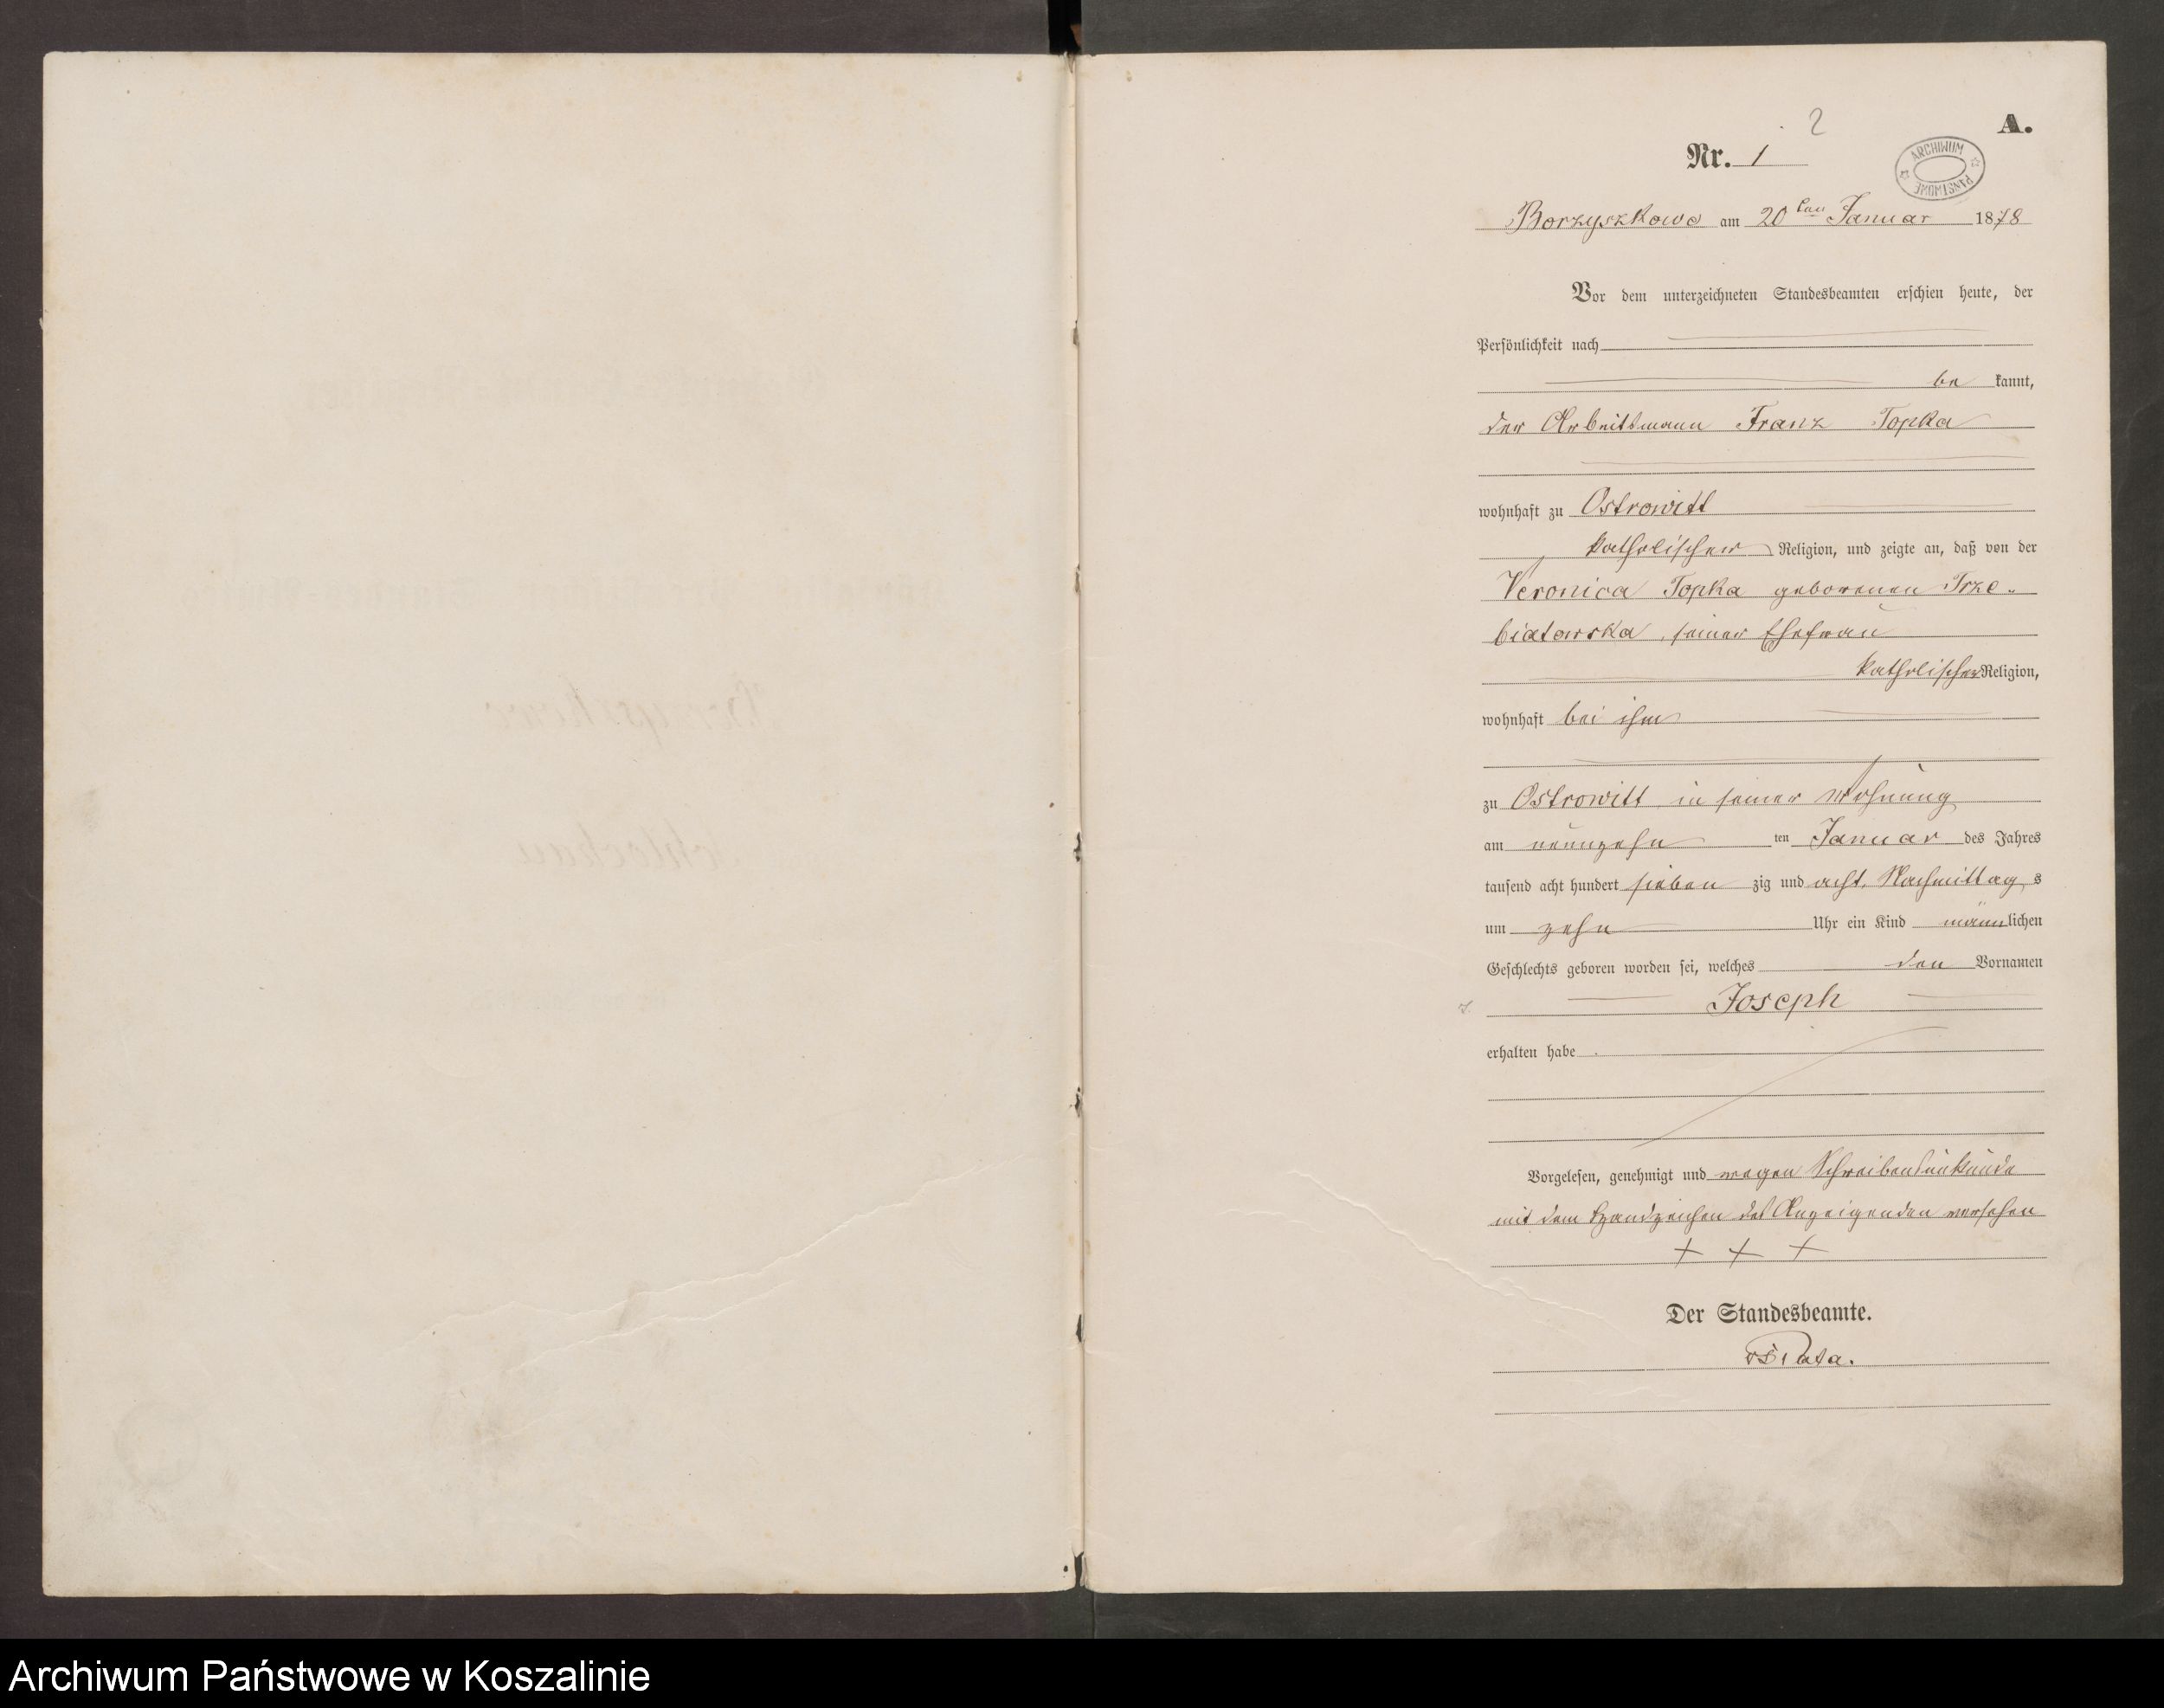 2
A.
Nr. 1
ARCHIWUM PAŃSTWOWE
Borzyszkowo am 20ten Januar 1878
Vor dem unterzeichneten Standesbeamten erschien heute, der
Persönlichkeit nach
bekannt,
der Arbeitsmann Franz Topka
wohnhaft zu Ostrowitt
katholischer Religion, und zeigte an, daß von der
Veronica Topka geborenen Trze-
biatowska, seiner Ehefrau
katholischer Religion,
wohnhaft bei ihm
zu Ostrowitt in seiner Wohnung
am neunzehn ten Januar des Jahres
tausend acht hundert sieben zig und acht, Nachmittag s
um zehn Uhr ein Kind männlichen
Geschlechts geboren worden sei, welches den Vornamen
Joseph
erhalten habe.
Vorgelesen, genehmigt und wegen Schreibensunkunde
mit dem Handzeichen des Anzeigenden versehen
+ + +
Der Standesbeamte.
Archiwum Państwowe w Koszalinie